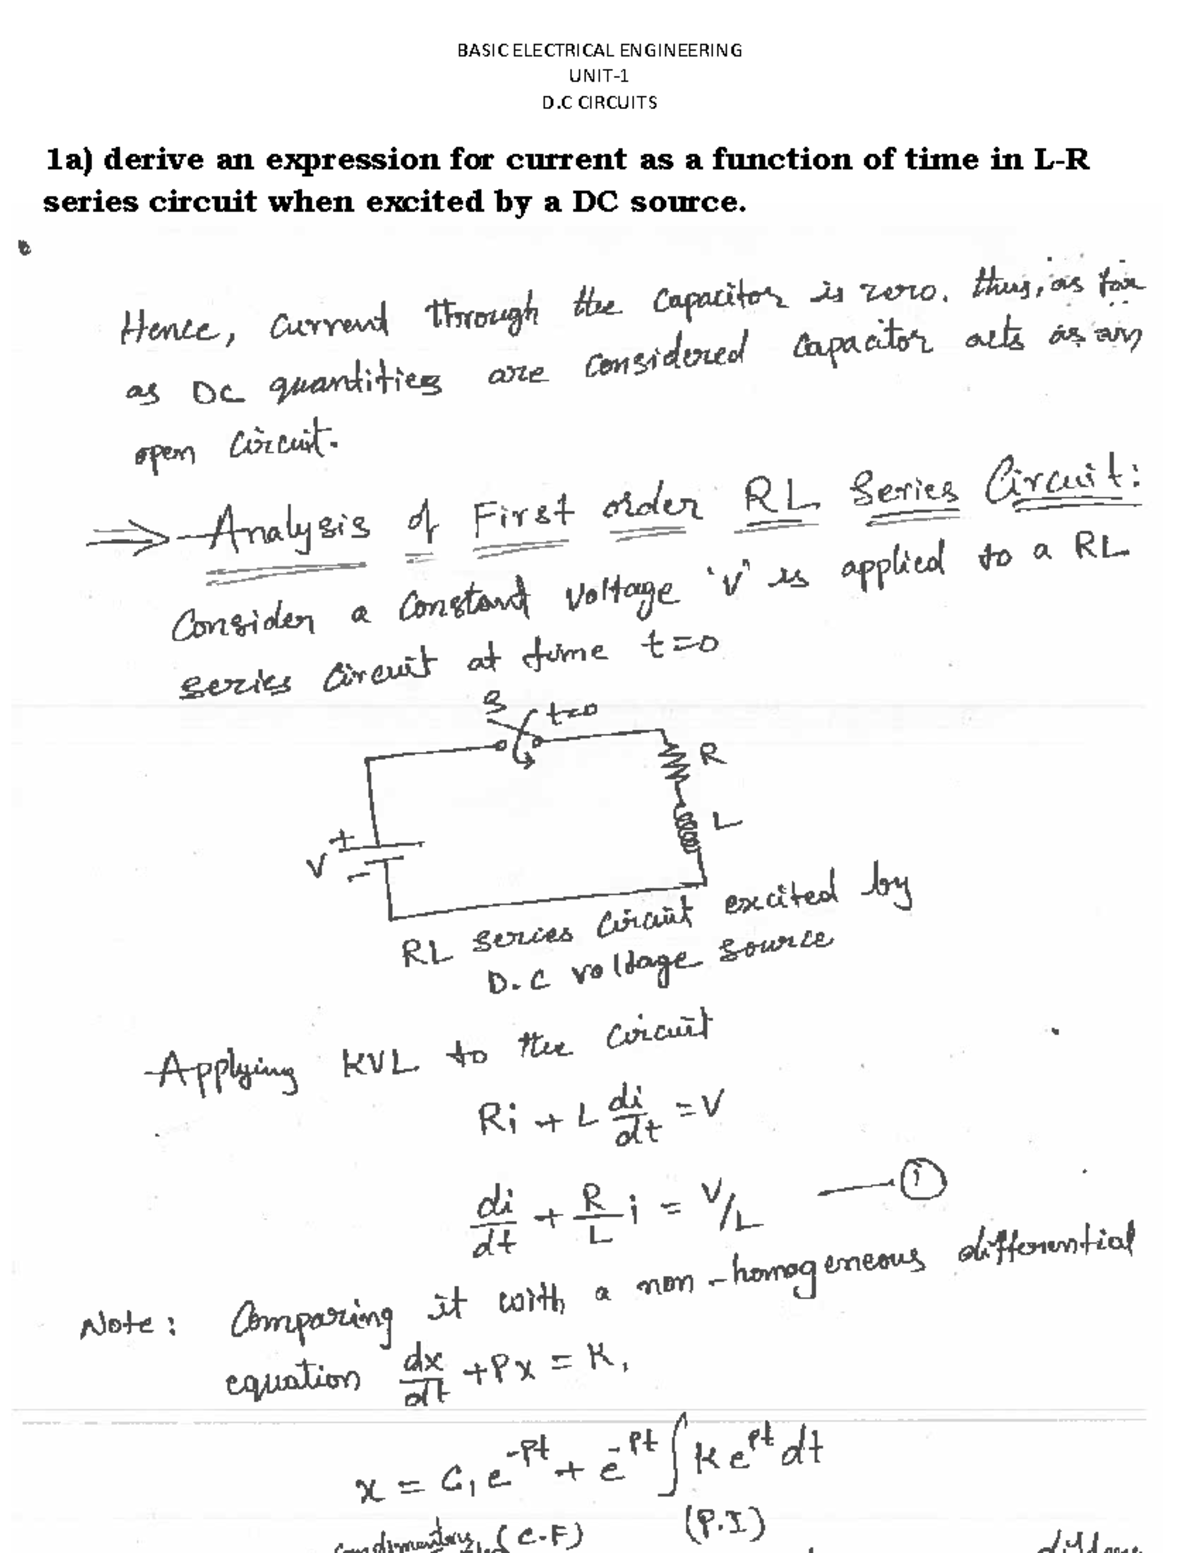 BASIC ELECTRICAL ENGINEERING
UNIT-1
D.C CIRCUITS
1a) derive an expression for current as a function of time in L-R
series circuit when excited by a DC source.
Hence, current through the capacitor is zero. thus, as far
as DC quantities are considered capacitor acts as an
open circuit.
⇒ Analysis of First order RL Series Circuit:
Consider a constant voltage 'V' is applied to a RL
series circuit at time t=0
S t=0
R
L
V + -
RL series circuit excited by
D.C voltage source
Applying KVL to the circuit
Ri + L di/dt = V
di/dt + R/L i = V/L — ①
Note: Comparing it with a non-homogeneous differential
equation dx/dt + Px = K,
x = C₁e^-Pt + e^-Pt ∫ K e^Pt dt
(C.F) (P.I)